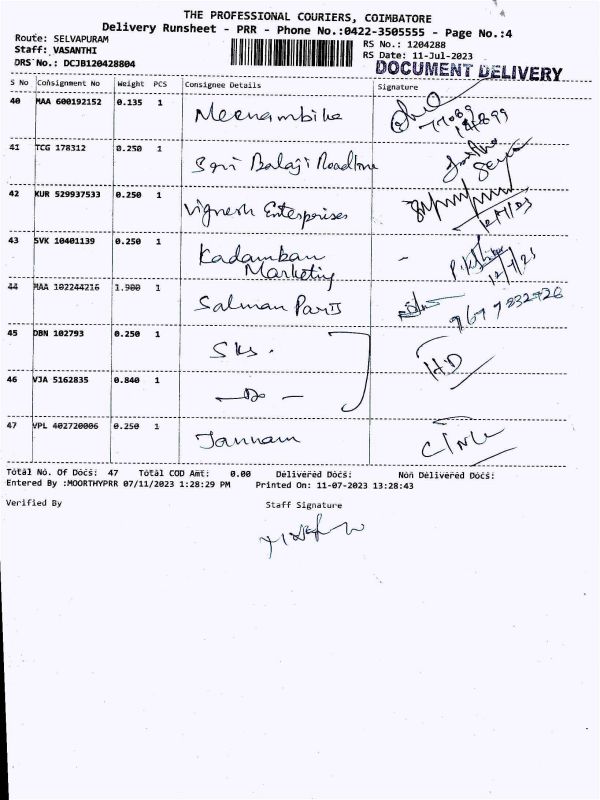 THE PROFESSIONAL COURIERS, COIMBATORE
Delivery Runsheet - PRR - Phone No.:0422-3505555 - Page No.:4
Route: SELVAPURAM
Staff: VASANTHI
RS No.: 1204288
RS Date: 11-Jul-2023
DRS No.: DCJB120428804
DOCUMENT DELIVERY
S No Consignment No Weight PCS Consignee Details Signature
40 MAA 600192152 0.135 1 Meenambika
41 TCG 178312 0.250 1 Sri Balaji Roadline
42 KUR 529937533 0.250 1 Vignesh Enterprises
43 SVK 10401139 0.250 1 Kadamban
Marketing
44 MAA 102244216 1.900 1 Salman
45 DBN 102793 0.250 1 SKS. H.D
46 VJA 5162835 0.840 1 — Do —
47 VPL 402720006 0.250 1
Total No. Of Docs: 47 Total COD Amt: 0.00 Delivered Docs: Non Delivered Docs:
Entered By :MOORTHYPRR 07/11/2023 1:28:29 PM Printed On: 11-07-2023 13:28:43
Verified By Staff Signature